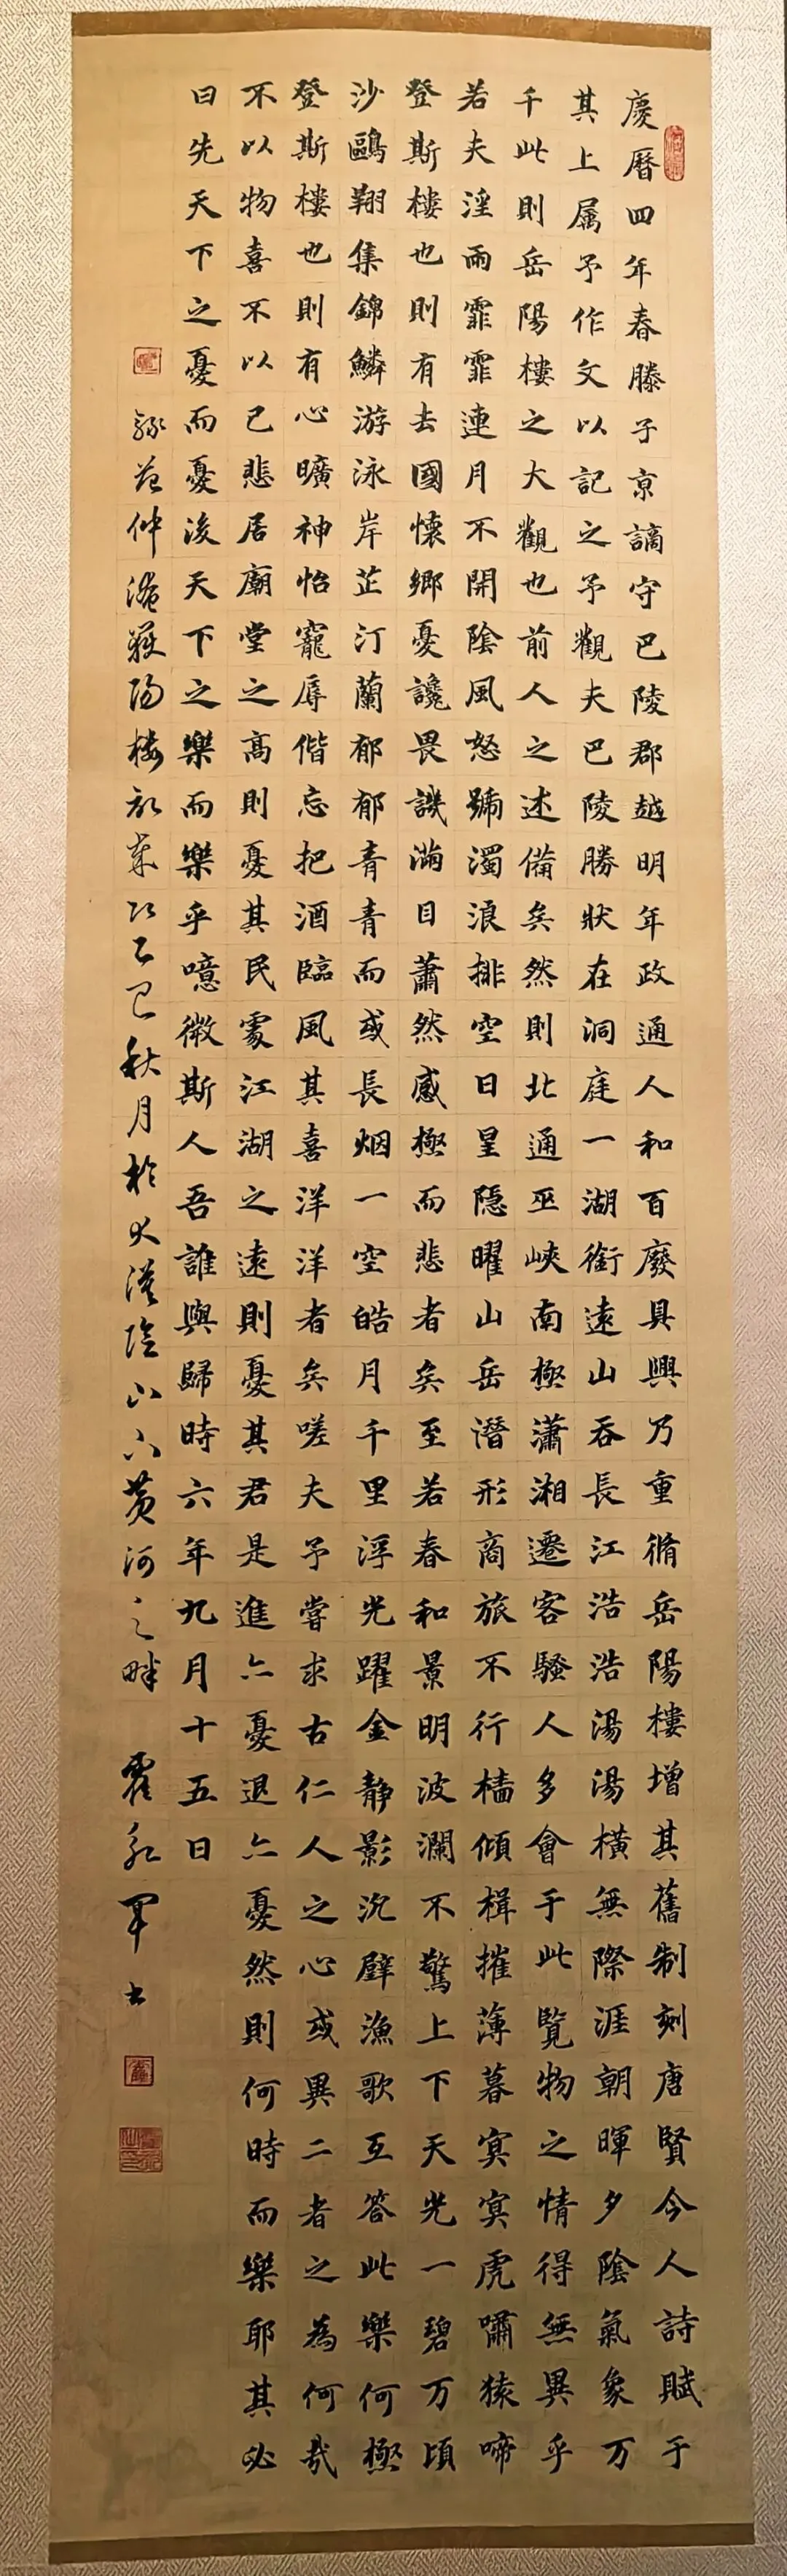 慶曆四年春滕子京謫守巴陵郡越明年政通人和百廢具興乃重脩岳陽樓增其舊制刻唐賢今人詩賦于
其上属予作文以記之予觀夫巴陵勝狀在洞庭一湖銜遠山吞長江浩浩湯湯橫無際涯朝暉夕陰氣象万
千此則岳陽樓之大觀也前人之述備矣然則北通巫峽南極瀟湘遷客騷人多會于此覽物之情得無異乎
若夫淫雨霏霏連月不開陰風怒號濁浪排空日星隱曜山岳潛形商旅不行檣傾楫摧薄暮冥冥虎嘯猿啼
登斯樓也則有去國懷鄉憂讒畏譏滿目蕭然感極而悲者矣至若春和景明波瀾不驚上下天光一碧万頃
沙鷗翔集錦鱗游泳岸芷汀蘭郁郁青青而或長烟一空皓月千里浮光躍金静影沉璧漁歌互答此樂何極
登斯樓也則有心曠神怡寵辱偕忘把酒臨風其喜洋洋者矣嗟夫予嘗求古仁人之心或異二者之為何哉
不以物喜不以己悲居廟堂之高則憂其民處江湖之遠則憂其君是進亦憂退亦憂然則何時而樂耶其必
曰先天下之憂而憂後天下之樂而樂乎噫微斯人吾誰與歸時六年九月十五日
錄范仲淹嶽陽樓記歲次乙巳秋月於大漠陰山下黄河之畔 霍永軍書